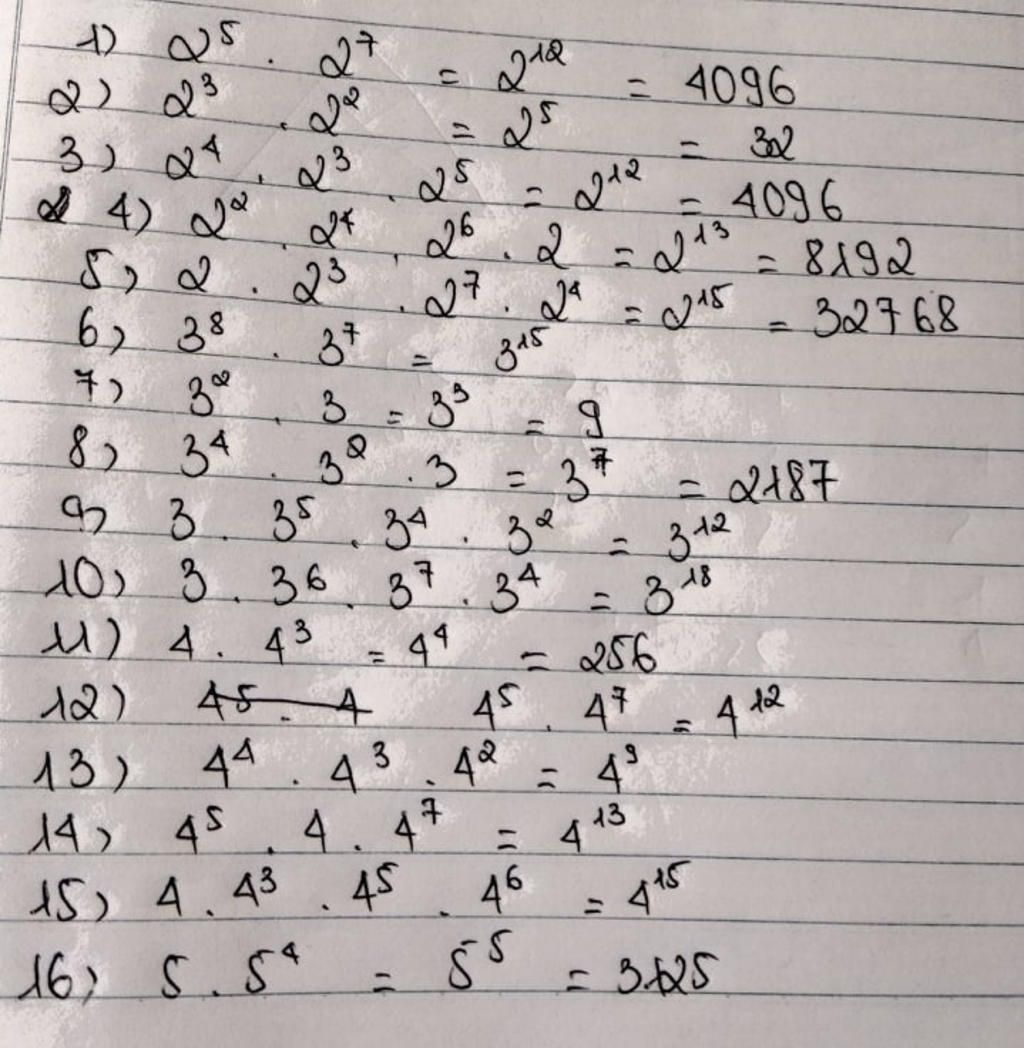 1) 2⁵ . 2⁷ = 2¹² = 4096
2) 2³ . 2² = 2⁵ = 32
3) 2⁴ . 2³ . 2⁵ = 2¹² = 4096
4) 2² . 2⁴ . 2⁶ . 2 = 2¹³ = 8192
5) 2 . 2³ . 2⁷ . 2⁴ = 2¹⁵ = 32768
6) 3⁸ . 3⁷ = 3¹⁵
7) 3² . 3 = 3³ = 9
8) 3⁴ . 3² . 3 = 3⁷ = 2187
9) 3 . 3⁵ . 3⁴ . 3² = 3¹²
10) 3 . 3⁶ . 3⁷ . 3⁴ = 3¹⁸
11) 4 . 4³ = 4⁴ = 256
12) 4⁵ . 4 4⁵ . 4⁷ = 4¹²
13) 4⁴ . 4³ . 4² = 4⁹
14) 4⁵ . 4 . 4⁷ = 4¹³
15) 4 . 4³ . 4⁵ . 4⁶ = 4¹⁵
16) 5 . 5⁴ = 5⁵ = 3125